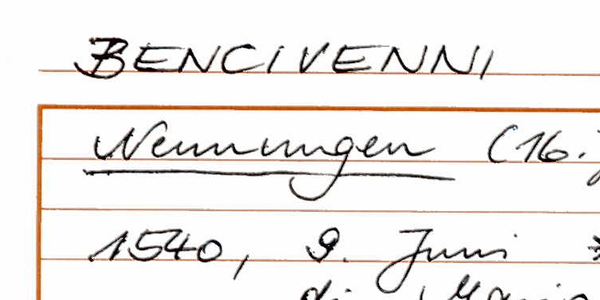 BENCIVENNI
Nennungen (16.
1540, 9. Juni *
di Maria